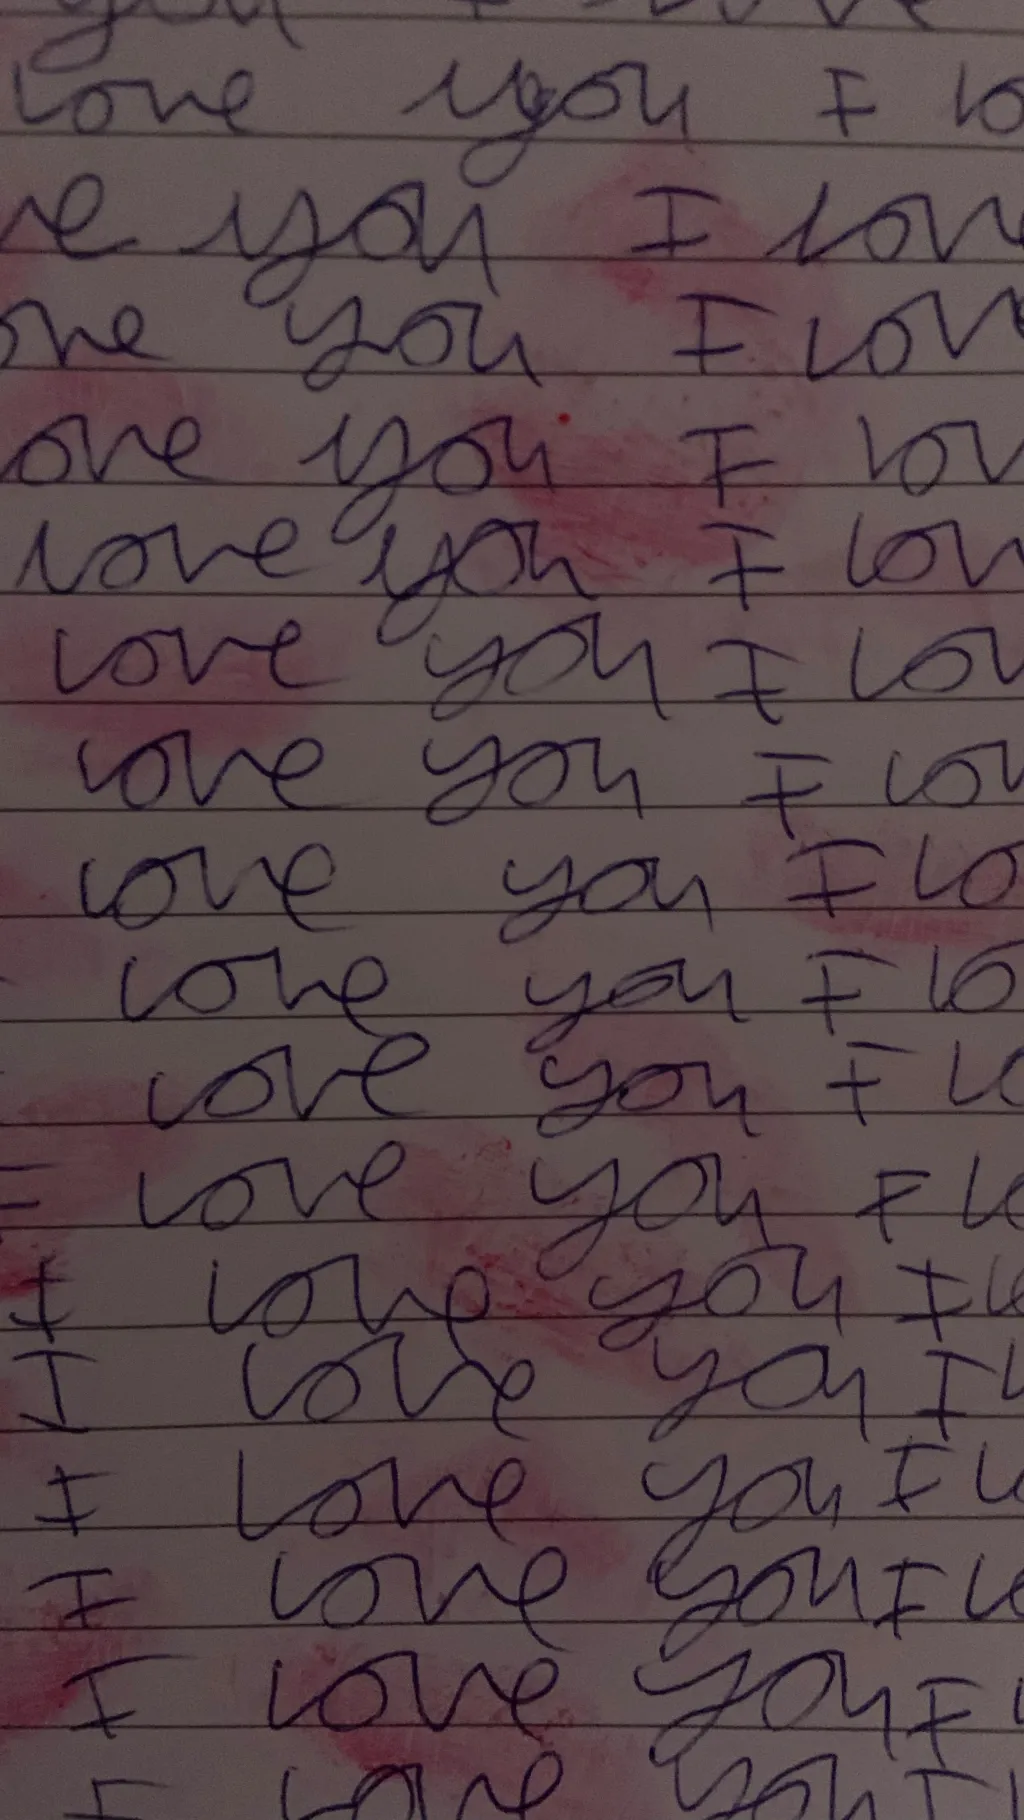 you I love
love you I lo
ve you I lov
ove you I lov
ove you I lov
love you I lov
love you I lov
love you I lov
love you I lo
love you I lo
love you I lo
I love you I lo
I love you I lo
I love you I l
I love you I lo
I love you I lo
I love you I l
I love you I